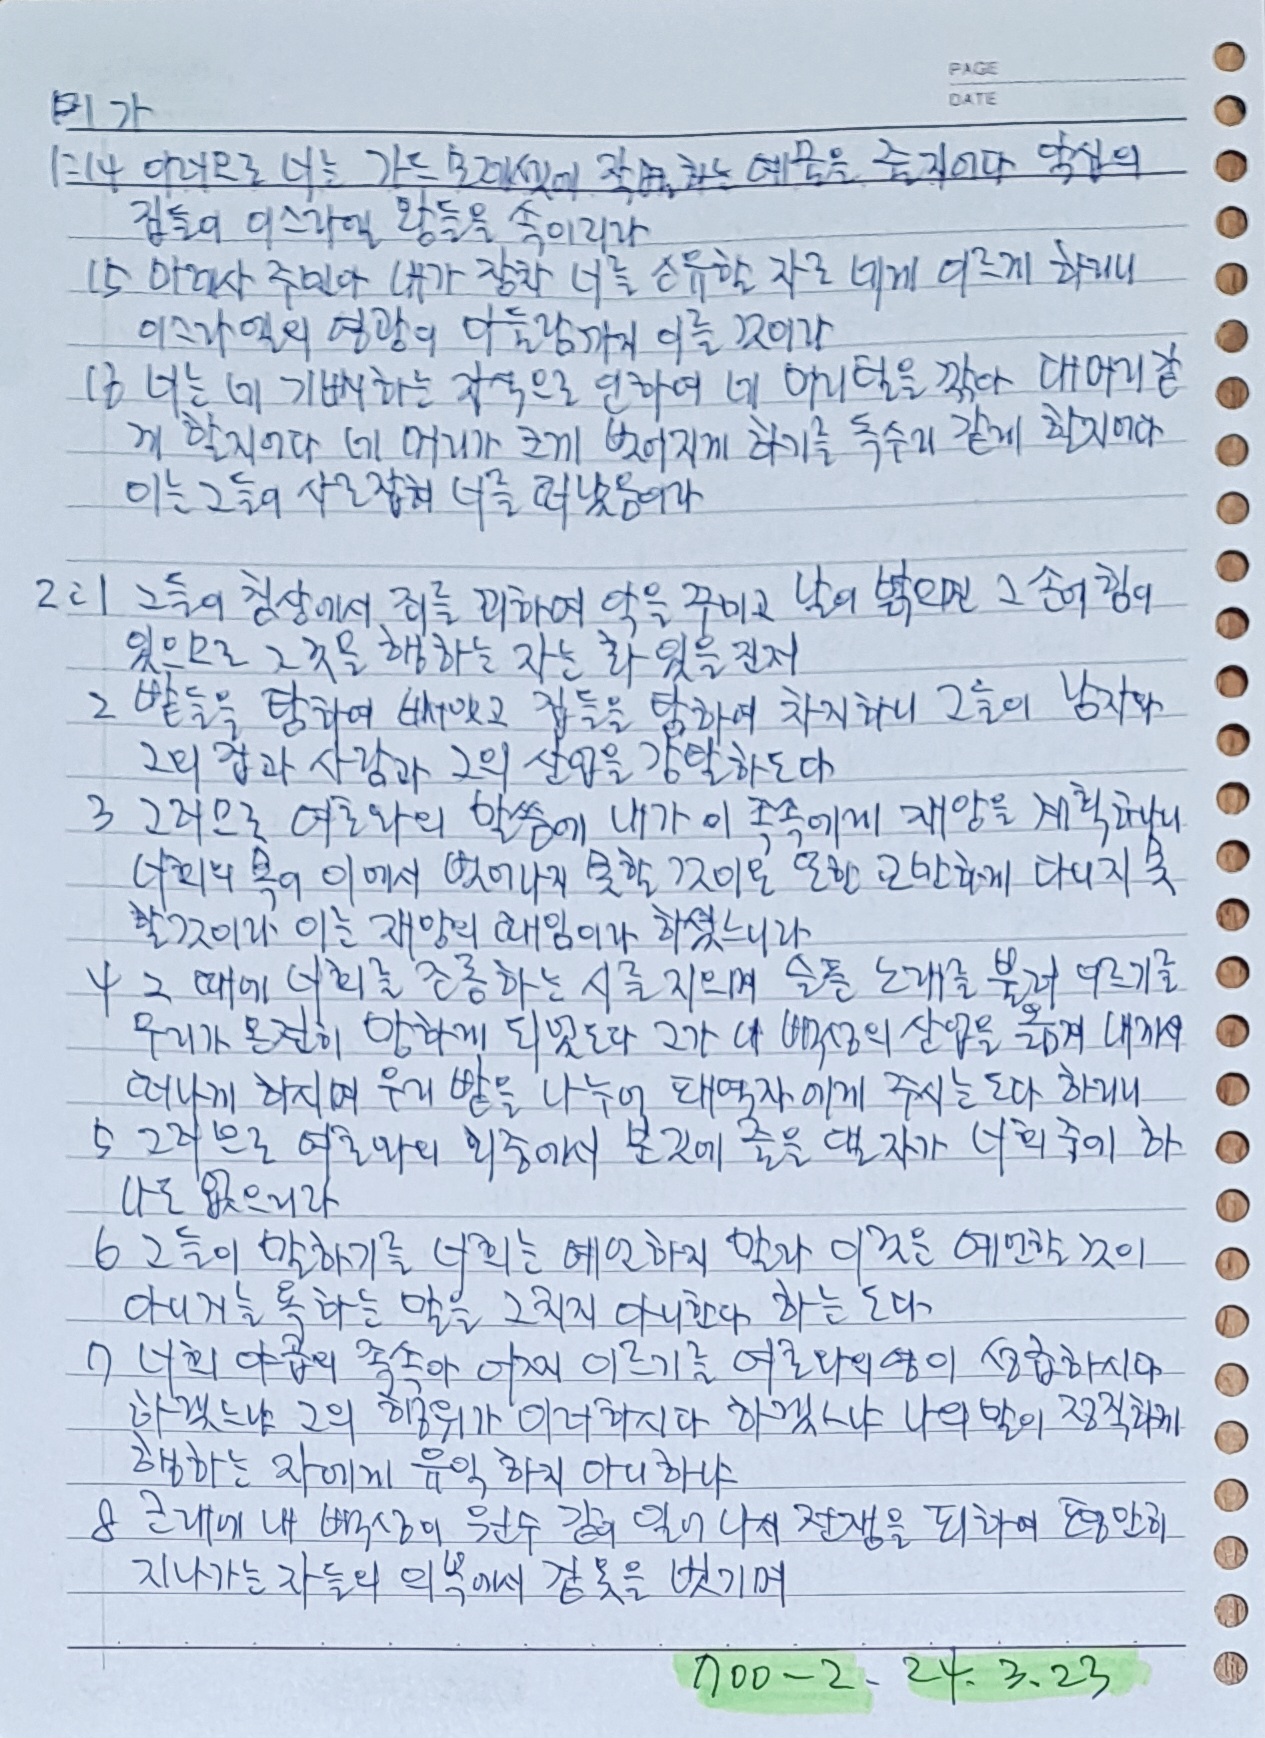 PAGE
DATE
미가
1:14 이러므로 너는 가드모레셋에 작별하는 예물을 줄지어다 악십의
집들이 이스라엘 왕들을 속이리라
15 마레사 주민아 내가 장차 너를 소유할 자로 네게 이르게 하리니
이스라엘의 영광이 아둘람까지 이를 것이라
16 너는 네 기뻐하는 자식으로 인하여 네 머리털을 깎아 대머리 같
게 할지어다 네 머리가 크게 벗어지게 하기를 독수리 같게 할지어다
이는 그들이 사로잡혀 너를 떠났음이라
2:1 그들이 침상에서 죄를 꾀하며 악을 꾸미고 날이 밝으면 그 손에 힘이
있으므로 그것을 행하는 자는 화 있을진저
2 밭들을 탐하여 빼앗고 집들을 탐하여 차지하니 그들이 남자와
그의 집과 사람과 그의 산업을 강탈하도다
3 그러므로 여호와의 말씀에 내가 이 족속에게 재앙을 계획하나니
너희의 목이 이에서 벗어나지 못할 것이요 또한 교만하게 다니지 못
할 것이라 이는 재앙의 때임이라 하셨느니라
4 그 때에 너희를 조롱하는 시를 지으며 슬픈 노래를 불러 이르기를
우리가 온전히 망하게 되었도다 그가 내 백성의 산업을 옮겨 내게서
떠나게 하시며 우리 밭을 나누어 패역자에게 주시는도다 하리니
5 그러므로 여호와의 회중에서 분깃에 줄을 댈 자가 너희 중에 하
나도 없으리라
6 그들이 말하기를 너희는 예언하지 말라 이것은 예언할 것이
아니거늘 욕하는 말을 그치지 아니한다 하는도다
7 너희 야곱의 족속아 어찌 이르기를 여호와의 영이 성급하시다
하겠느냐 그의 행위가 이러하시다 하겠느냐 나의 말이 정직하게
행하는 자에게 유익하지 아니하냐
8 근래에 내 백성이 원수 같이 일어나서 전쟁을 피하여 평안히
지나가는 자들의 의복에서 겉옷을 벗기며
700-2. 24. 3. 23